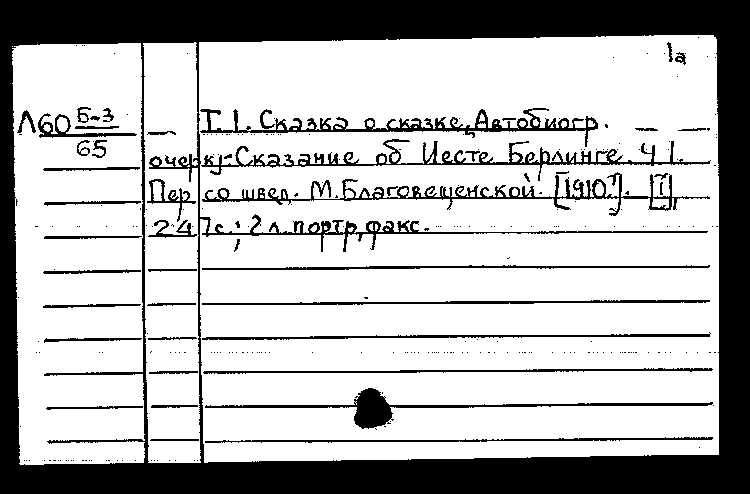 1а
Л60 Б-3/65
Т. 1. Сказка о сказке. (Автобиогр.
очерк)-Сказание об Иесте Берлинге. Ч 1.
Пер со швед. М.Благовещенской. [1910?]. [I],
247с.; 2 л. портр, факс.